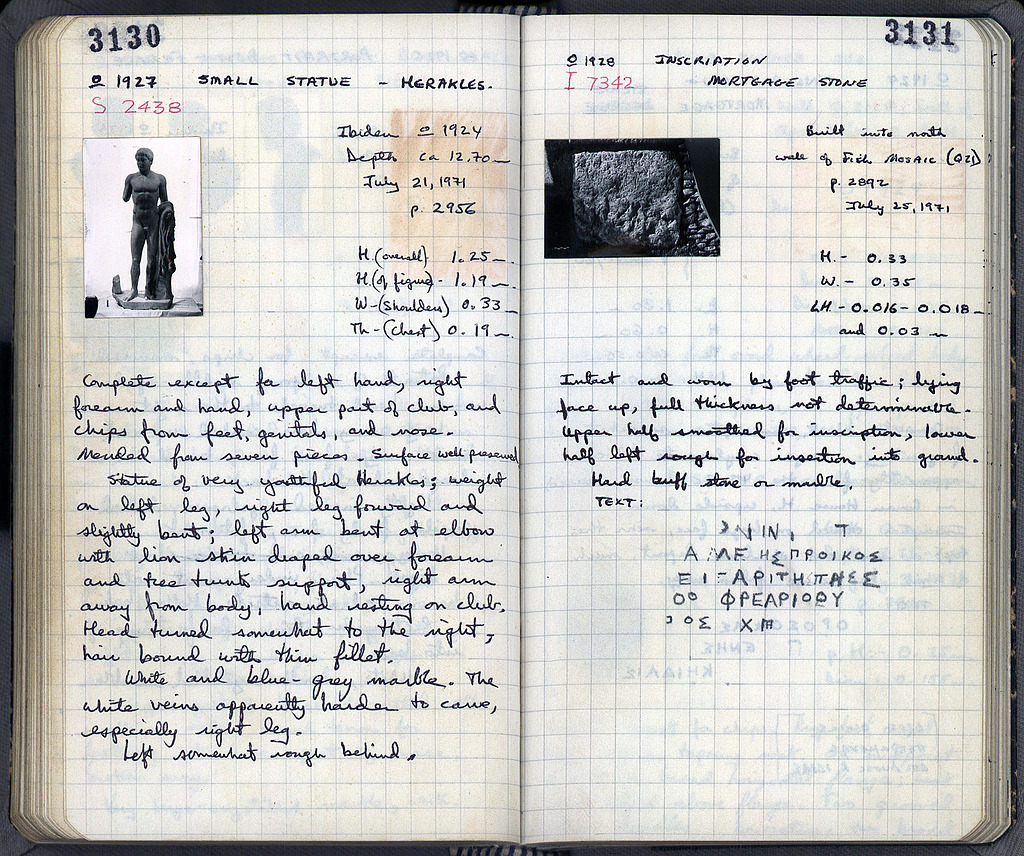 3130
O 1927 SMALL STATUE - HERAKLES.
S 2438
Ibidem O 1924
Depth ca 12.70 m
July 21, 1971
p. 2956
H. (overall) 1.25 m
H. (of figure) - 1.19 m
W - (shoulders) 0.33 m
Th - (chest) 0.19 m
Complete except for left hand, right
forearm and hand, upper part of club, and
chips from feet, genitals, and nose.
Mended from seven pieces. Surface well preserved
Statue of very youthful Herakles; weight
on left leg, right leg forward and
slightly bent; left arm bent at elbow
with lion skin draped over forearm
and tree trunk support, right arm
away from body, hand resting on club.
Head turned somewhat to the right,
hair bound with thin fillet.
White and blue-grey marble. The
white veins apparently harder to carve,
especially right leg.
Left somewhat rough behind.
3131
O 1928 INSCRIPTION
I 7342 MORTGAGE STONE
Built into north
wall of Fish Mosaic (Q21)
p. 2892
July 25, 1971
H. - 0.33
W. - 0.35
LH - 0.016 - 0.018 m
and 0.03 m
Intact and worn by foot traffic; lying
face up, full thickness not determinable.
Upper half smoothed for inscription, lower
half left rough for insertion into ground.
Hard buff stone or marble.
TEXT:
ΝΙΝ Τ
Α ΜΕ ΗΣ ΠΡΟΙΚΟΣ
ΕΙ ΑΡΙΤΗΠΗΕΣ
ΟΟ ΦΡΕΑΡΙΟΥ
ΟΣ ΧΠ